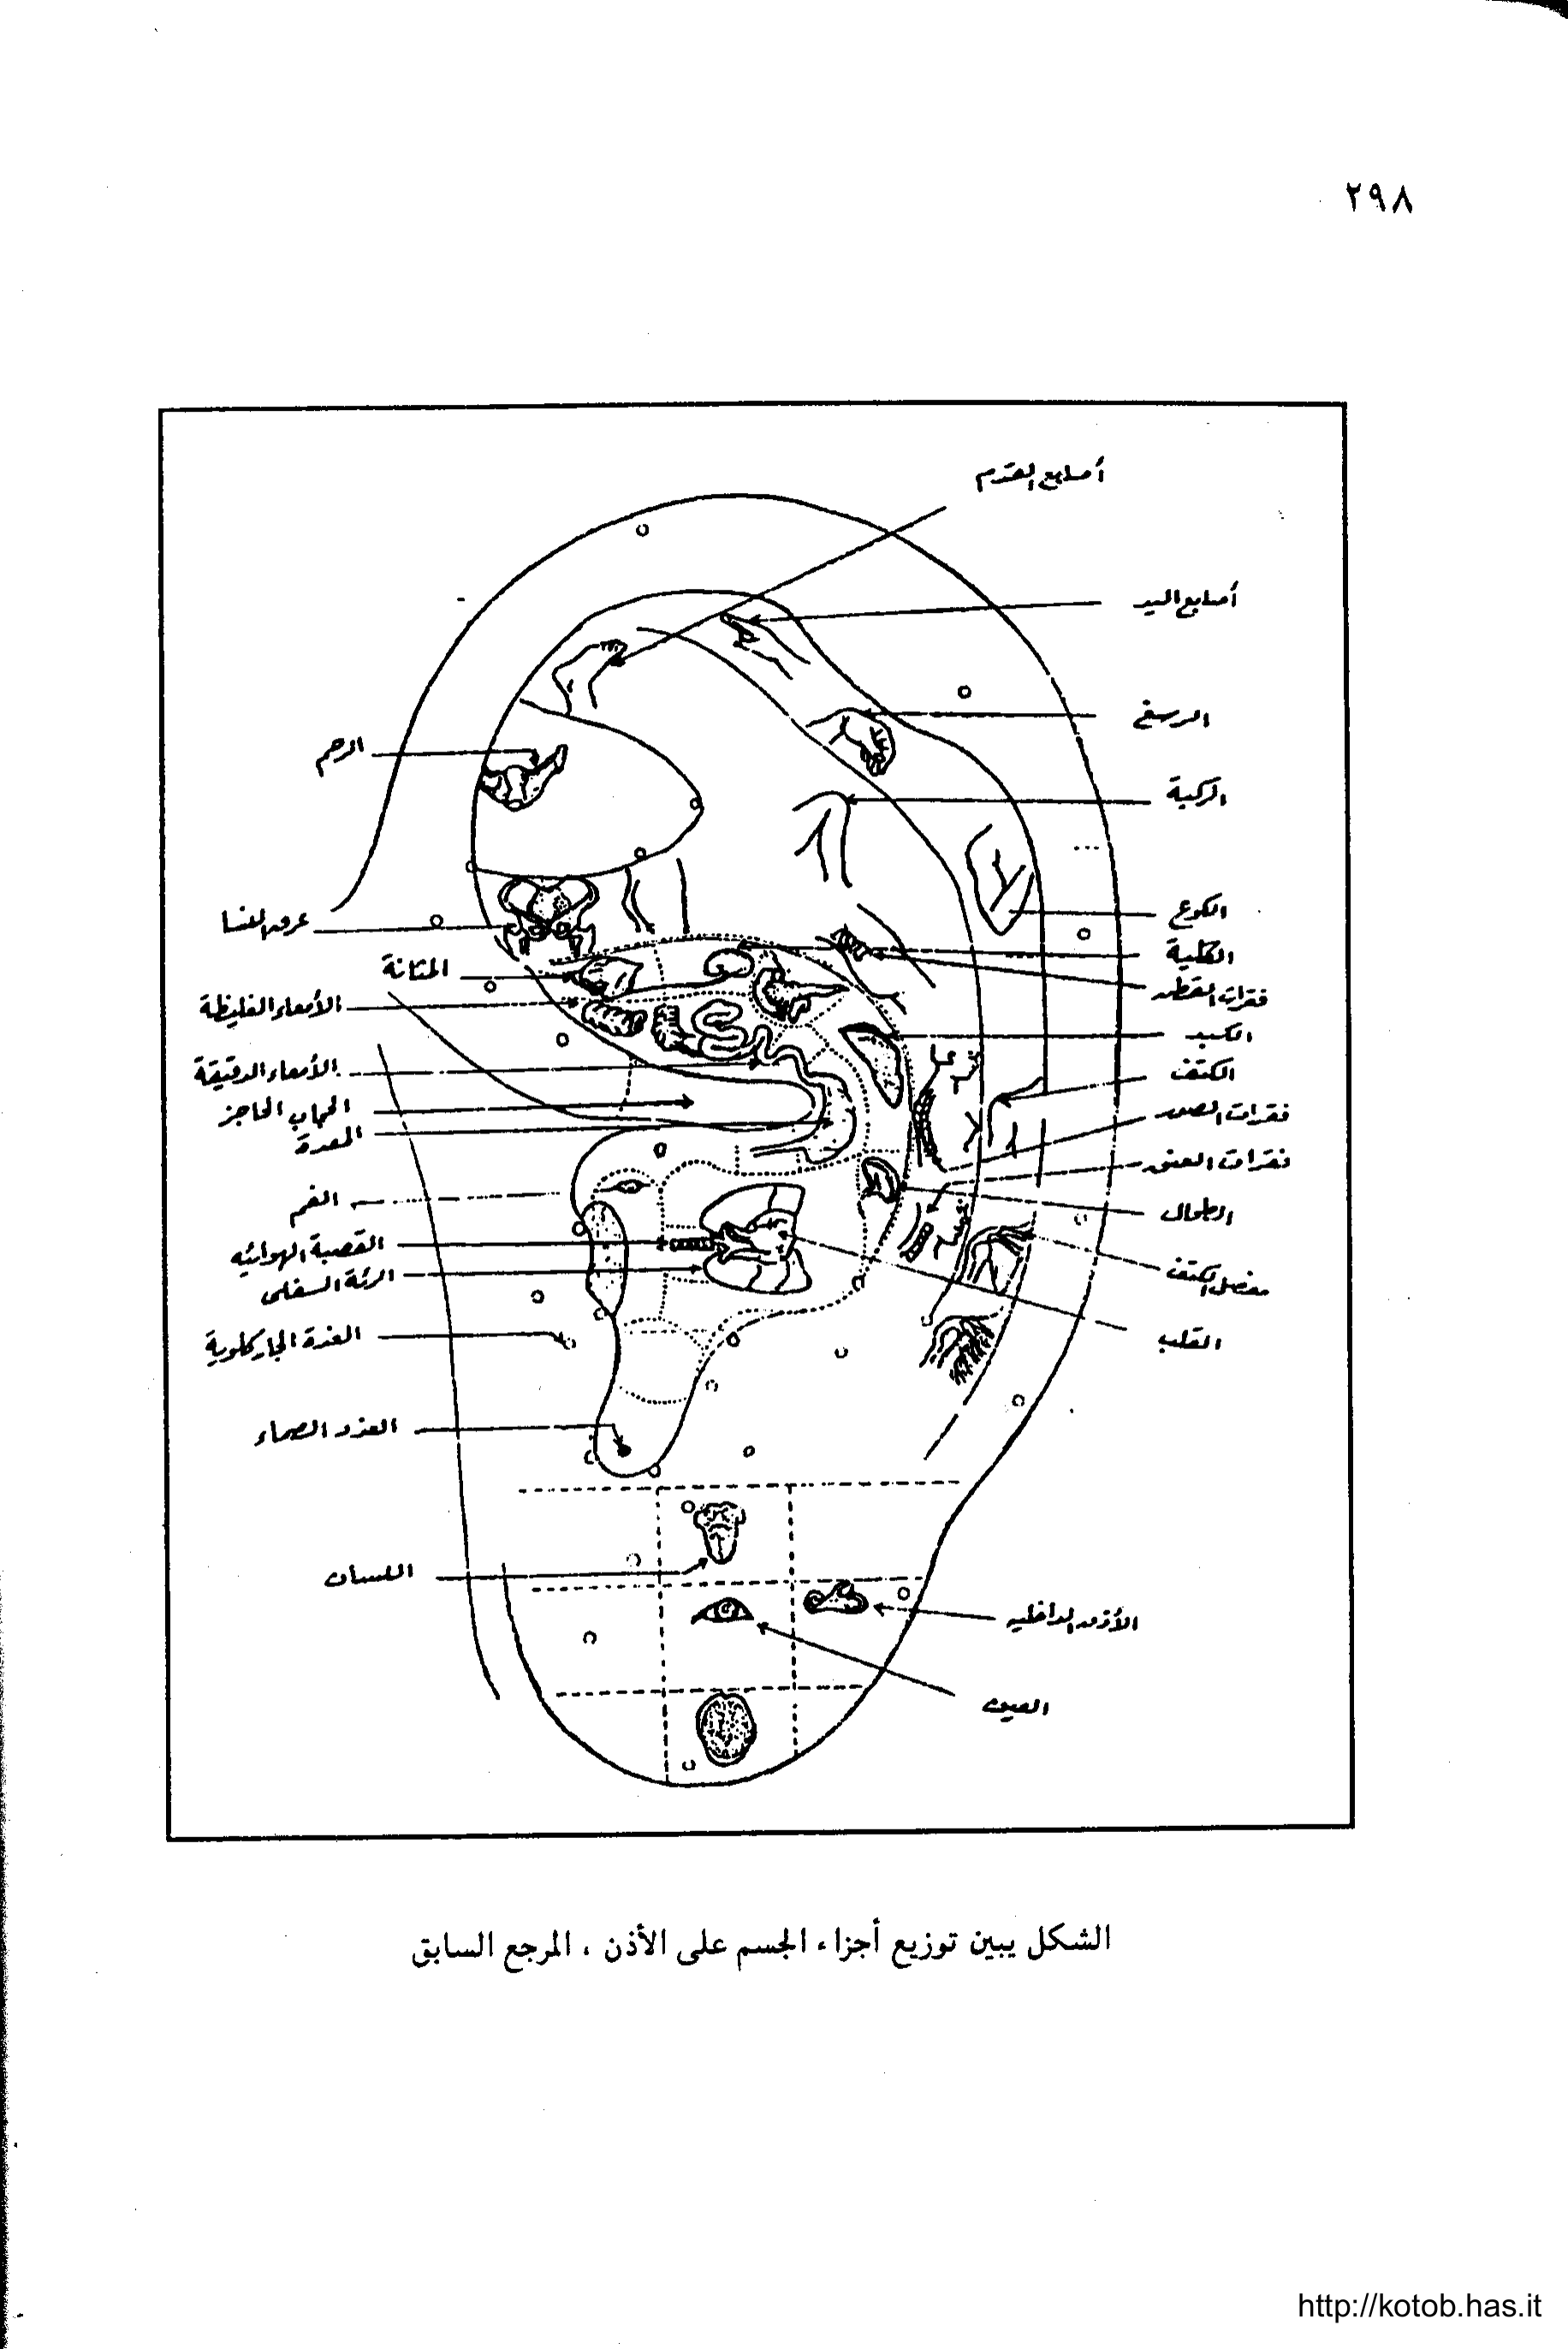 ٢٩٨
أصابع القدم
أصابع اليد
الرسغ
الركبة
الكوع
الكلية
فقرات القطن
الكبد
الكتف
فقرات الصدر
فقرات العنق
الطحال
مفصل الكتف
القلب
الأذن الداخليه
العين
الرحم
عرق النسا
المثانة
الأمعاء الغليظة
الأمعاء الدقيقة
الحجاب الحاجز
المعدة
الفم
القصبة الهوائيه
الرئة السفلى
الغدة الجاركلوية
الغدد الصماء
اللسان
الشكل يبين توزيع أجزاء الجسم على الأذن ، المرجع السابق
http://kotob.has.it